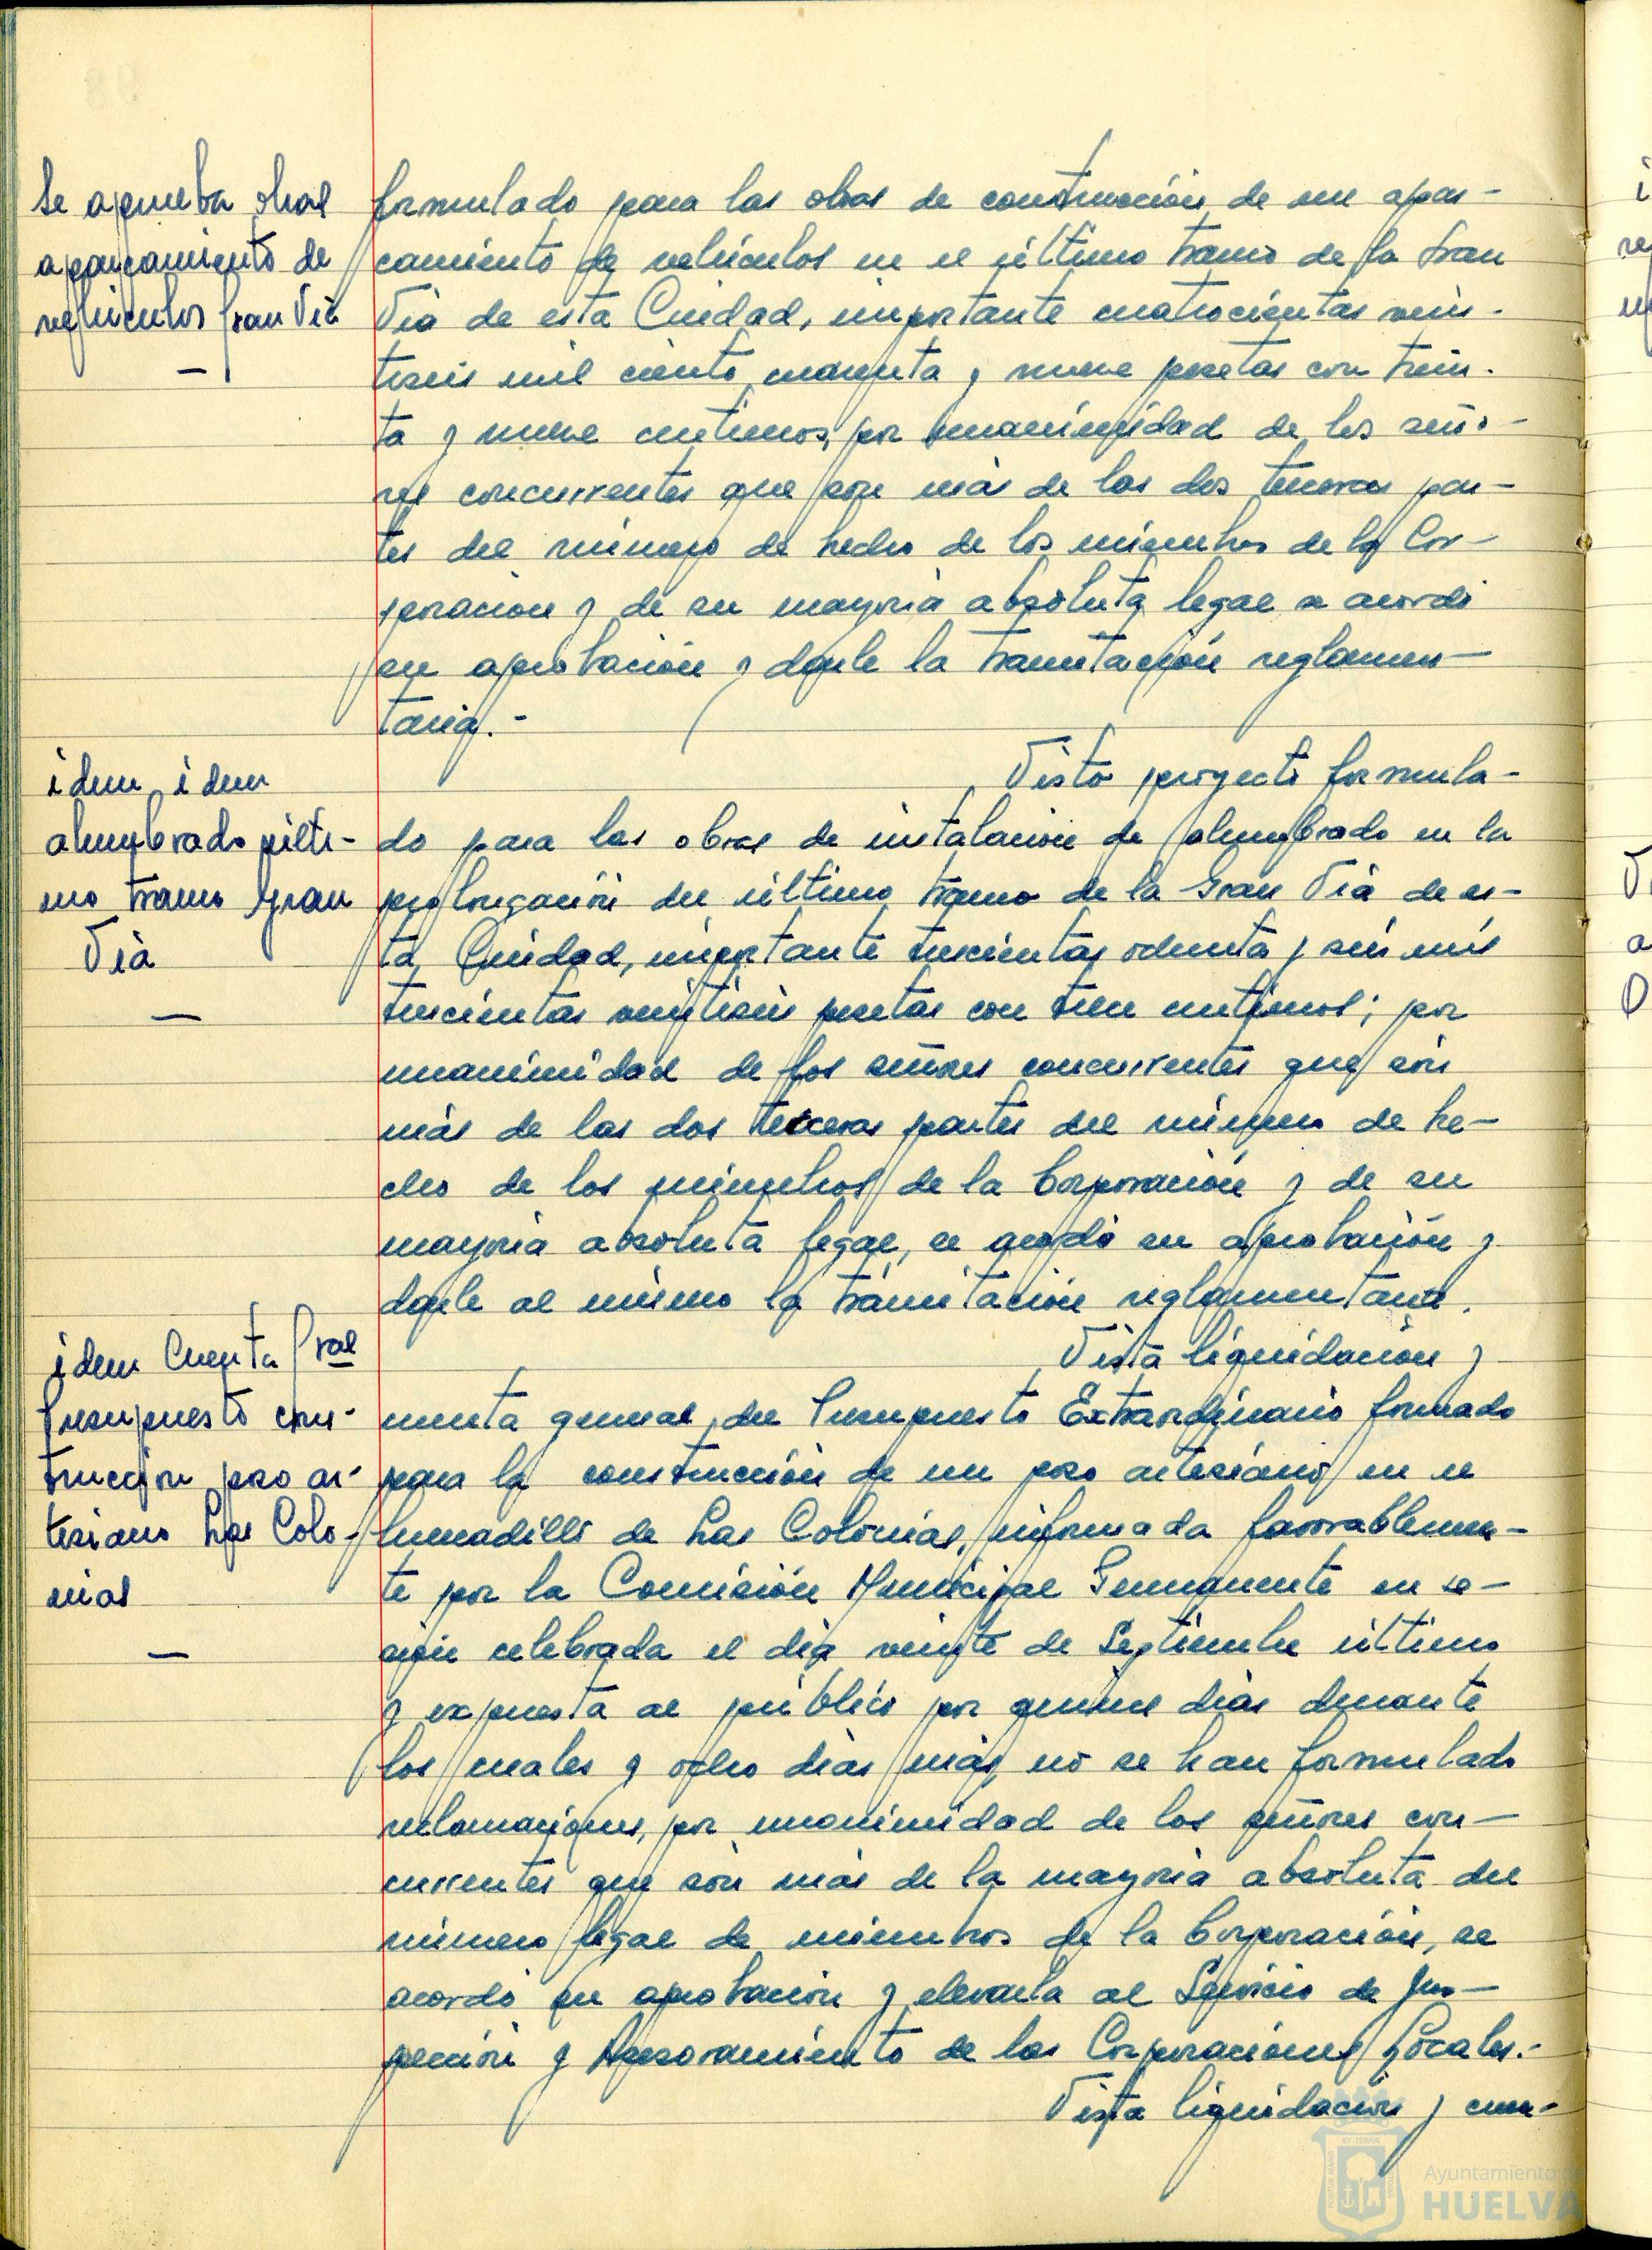 Se aprueba obras
aparcamiento de
vehiculos Gran Vía
formulado para las obras de construcción de un apar-
camiento de vehículos en el último tramo de la Gran
Vía de esta Ciudad, importante cuatrocientas vein-
tiseis mil ciento cuarenta y nueve pesetas con trein-
ta y nueve centimos, por unanimidad de los seño-
res concurrentes que son más de las dos terceras par-
tes del número de hecho de los miembros de la Cor-
poración y de su mayoría absoluta legal se acordó
su aprobación y darle la tramitación reglamen-
taria.-
idem idem
alumbrado últi-
mo tramo Gran
Vía
Visto proyecto formula-
do para las obras de instalación de alumbrado en la
prolongación del último tramo de la Gran Vía de es-
ta Ciudad, importante trescientas ochenta y seis mil
trescientas veintiseis pesetas con trece centimos; por
unanimidad de los señores concurrentes que son
más de las dos terceras partes del número de he-
cho de los miembros de la Corporación y de su
mayoría absoluta legal, se acordó su aprobación y
darle al mismo la tramitación reglamentaria.
idem Cuenta Gral
Presupuesto cons-
trucción pozo ar-
tesiano Las Colo-
nias
Vista liquidación y
cuenta general del Presupuesto Extraordinario formado
para la construcción de un pozo artesiano en el
Humadillo de Las Colonias, informada favorablemen-
te por la Comisión Municipal Permanente en se-
sión celebrada el día veinte de Septiembre último
y expuesta al público por quince días durante
los cuales y ocho días más, no se han formulado
reclamaciones, por unanimidad de los señores con-
currentes que son más de la mayoría absoluta del
número legal de miembros de la Corporación, se
acordó su aprobación y elevarla al Servicio de Ins-
pección y Asesoramiento de las Corporaciones Locales.-
Vista liquidación y cuen-
Ayuntamiento de
HUELVA